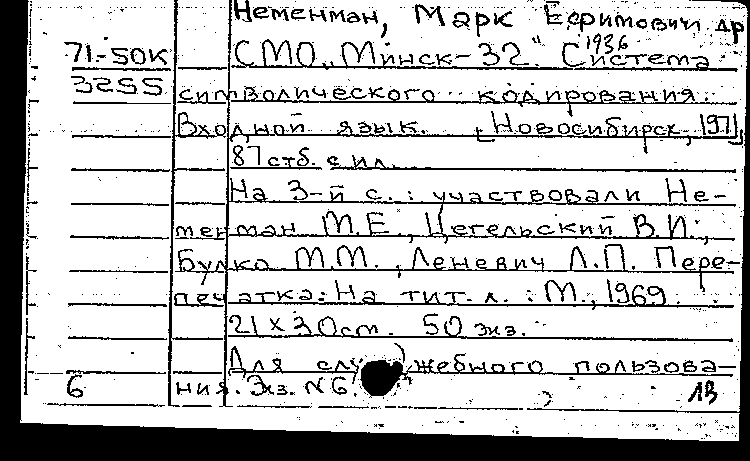 Неменман, Марк Ефимович и др
1936
71-50К СМО „Минск-32". Система
3255 символического кодирования.
Входной язык. [Новосибирск, 1971]
87 стб. с ил.
На 3-й с.: участвовали Не-
менман М.Е., Цегельский В.И.,
Булко М.М., Леневич Л.П. Пере-
печатка: На тит. л.: М., 1969.
21 х 30 см. 50 экз.
Для служебного пользова-
6 ния. Экз. №6. 1В